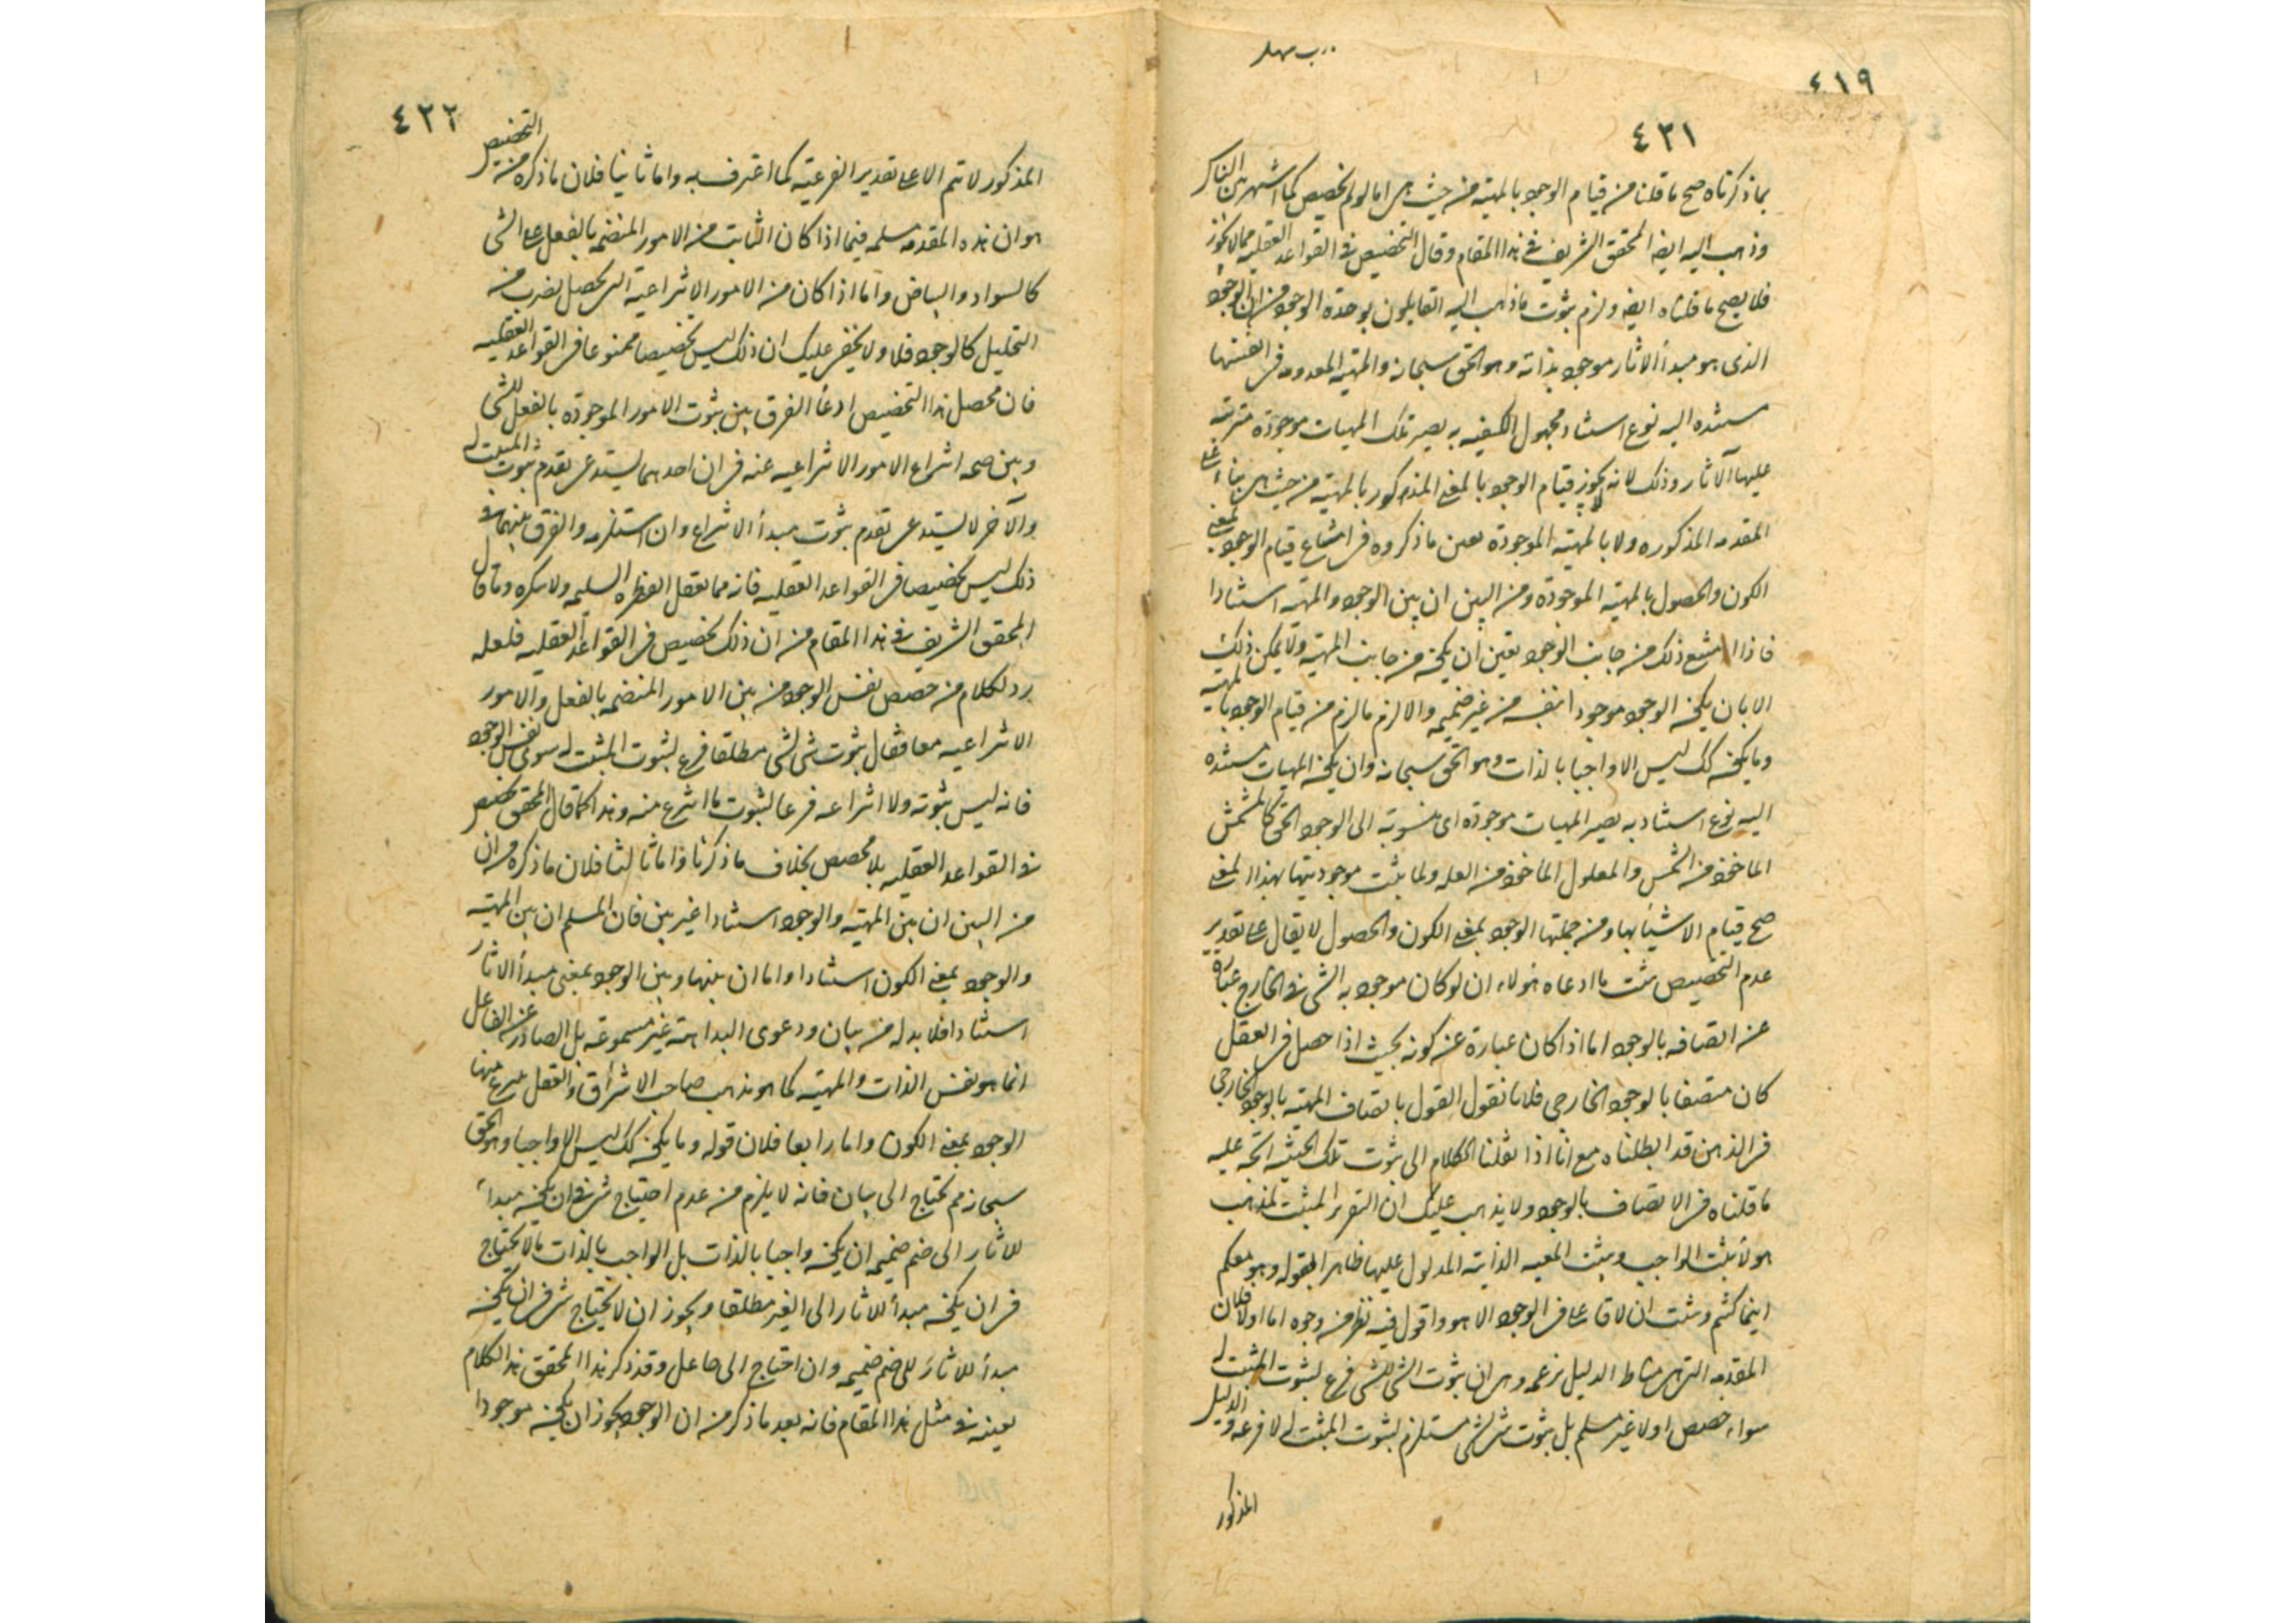 ٤١٩
٤٢١
بماذكرناه صح ما قلنا من قيام الوجود بالمهية من حيث هى اما لولم يخصص كما اشتهر بين
وذهب اليه ايضا المحقق الشريف فى هذا المقام وقال التخصيص فى القواعد العقلية مما لا يجوز
فلا يصح ما قلناه ايضا ولزم ثبوت ما ذهب اليه القايلون بوحدة الوجود من ان الوجود
الذى هو مبدأ الاثار موجود بذاته وهو الحق سبحانه والمهية المعدومه فى انفسها
مستنده اليه نوع استناد مجهول الكيفيه به يصير تلك المهيات موجودة مترتبه
عليها الآثار وذلك لانه لا يجوز قيام الوجود بالمعنى المذكور بالمهية من حيث هى بناء على
المقدمه المذكوره ولا بالمهية الموجودة بعين ما ذكروه فى امتناع قيام الوجود بمعنى
الكون والحصول بالمهية الموجودة ومن البين ان بين الوجود والمهية استنادا
فاذا امتنع ذلك من جانب الوجود تعين ان يكون من جانب المهية ولا يمكن ذلك
الا بان يكون الوجود موجودا بنفسه من غير ضميمه والا لزم ما لزم من قيام الوجود بالمهية
وما يكون كك ليس الا واجبا بالذات وهو الحق سبحانه وان يكون المهيات مستنده
اليه نوع استناد به يصير المهيات موجودة اى منسوبة الى الوجود الحق كالمشمس
الماخوذ من الشمس والمعلول الماخوذ من العله ولما ثبت موجوديتها بهذا المعنى
صح قيام الاشياء بها ومن جملتها الوجود بمعنى الكون والحصول لا يقال على تقدير
عدم التخصيص يثبت ما ادعاه هولاء ان لو كان موجودية الشى فى الخارج عبارة
عن اتصافه بالوجود اما اذا كان عبارة عن كونه بحيث اذا حصل فى العقل
كان متصفا بالوجود الخارجى فلا لانا نقول القول باتصاف المهية بالوجود الخارجى
فى الذهن قد ابطلناه مع انا اذا نقلنا الكلام الى ثبوت تلك الحيثيه اتجه عليه
ما قلناه فى الاتصاف بالوجود ولا يذهب عليك ان التقرير المثبت لمذهب
هولاء يثبت الواجب ويثبت المعيه الذاتية المدلول عليها ظاهرا بقوله وهو معكم
اينما كنتم ويثبت ان لا فاعل فى الوجود الا هو واقول فيه نظر من وجوه اما اولا فلان
المقدمه التى هى مناط الدليل بزعمه وهى ان ثبوت الشى للشى فرع لثبوت المثبت له
سواء خصص اولا غير مسلم بل ثبوت شى لشى مستلزم لثبوت المثبت له لا فرعه والدليل
المذكور
٤٢٢
المذكور لا يتم الا على تقدير الفرعيّة كما اعترف به واما ثانيا فلان ما ذكره من التخصيص
هو ان هذه المقدمه مسلمه فيما اذا كان الثابت من الامور المنضمه بالفعل على الشى
كالسواد والبياض واما اذا كان من الامور الانتزاعية التى يحصل بضرب من
التحليل كالوجود فلا ولا يخفى عليك ان ذلك ليس تخصيصا ممنوعا فى القواعد العقليه
فان محصل هذا التخصيص ادعاء الفرق بين ثبوت الامور الموجودة بالفعل للشى
وبين صحة انتزاع الامور الانتزاعيه عنه فى ان احدهما يستدعى تقدم ثبوت المثبت له
والآخر لا يستدعى تقدم ثبوت مبدأ الانتزاع وان استلزمه والفرق بينهما فى
ذلك ليس تخصيصا فى القواعد العقليه فانه مما يعقل الفطره السليمه ولا ينكره وما قال
المحقق الشريف فى هذا المقام من ان ذلك تخصيص فى القواعد العقليه فلعله
رد لكلام من خصص نفس الوجود من بين الامور المنضمه بالفعل والامور
الانتزاعيه معا فقال ثبوت شى لشى مطلقا فرع لثبوت المثبت له سوى نفس الوجود
فانه ليس ثبوته ولا انتزاعه فرعا لثبوت ما انتزع منه وهذا كما قال المحقق تخصيص
فى القواعد العقليه بلا مخصص بخلاف ما ذكرنا واما ثالثا فلان ما ذكره من ان
من البين ان بين المهية والوجود استنادا غير بين فان المسلم ان بين المهية
والوجود بمعنى الكون استنادا واما ان بينها وبين الوجود بمعنى مبدأ الاثار
استنادا فلا بد له من بيان ودعوى البداهة غير مسموعة بل الصادر عن الفاعل
انما هو نفس الذات والمهية كما هو مذهب صاحب الاشراق والعقل ينتزع عنها
الوجود بمعنى الكون واما رابعا فلان قوله وما يكون كك ليس الا واجبا وهو الحق
سبحانه مم يحتاج الى بيان فانه لا يلزم من عدم احتياج شى فى ان يكون مبدأ
للاثار الى ضم ضميمه ان يكون واجبا بالذات بل الواجب بالذات ما لا يحتاج
فى ان يكون مبدأ للاثار الى الغير مطلقا ويجوز ان لا يحتاج شى فى ان يكون
مبدأ للاثار الى ضم ضميمه وان احتاج الى جاعل وقد ذكر هذا المحقق هذا الكلام
بعينه فى مثل هذا المقام فانه بعد ما ذكر من ان الوجود يجوز ان يكون موجودا